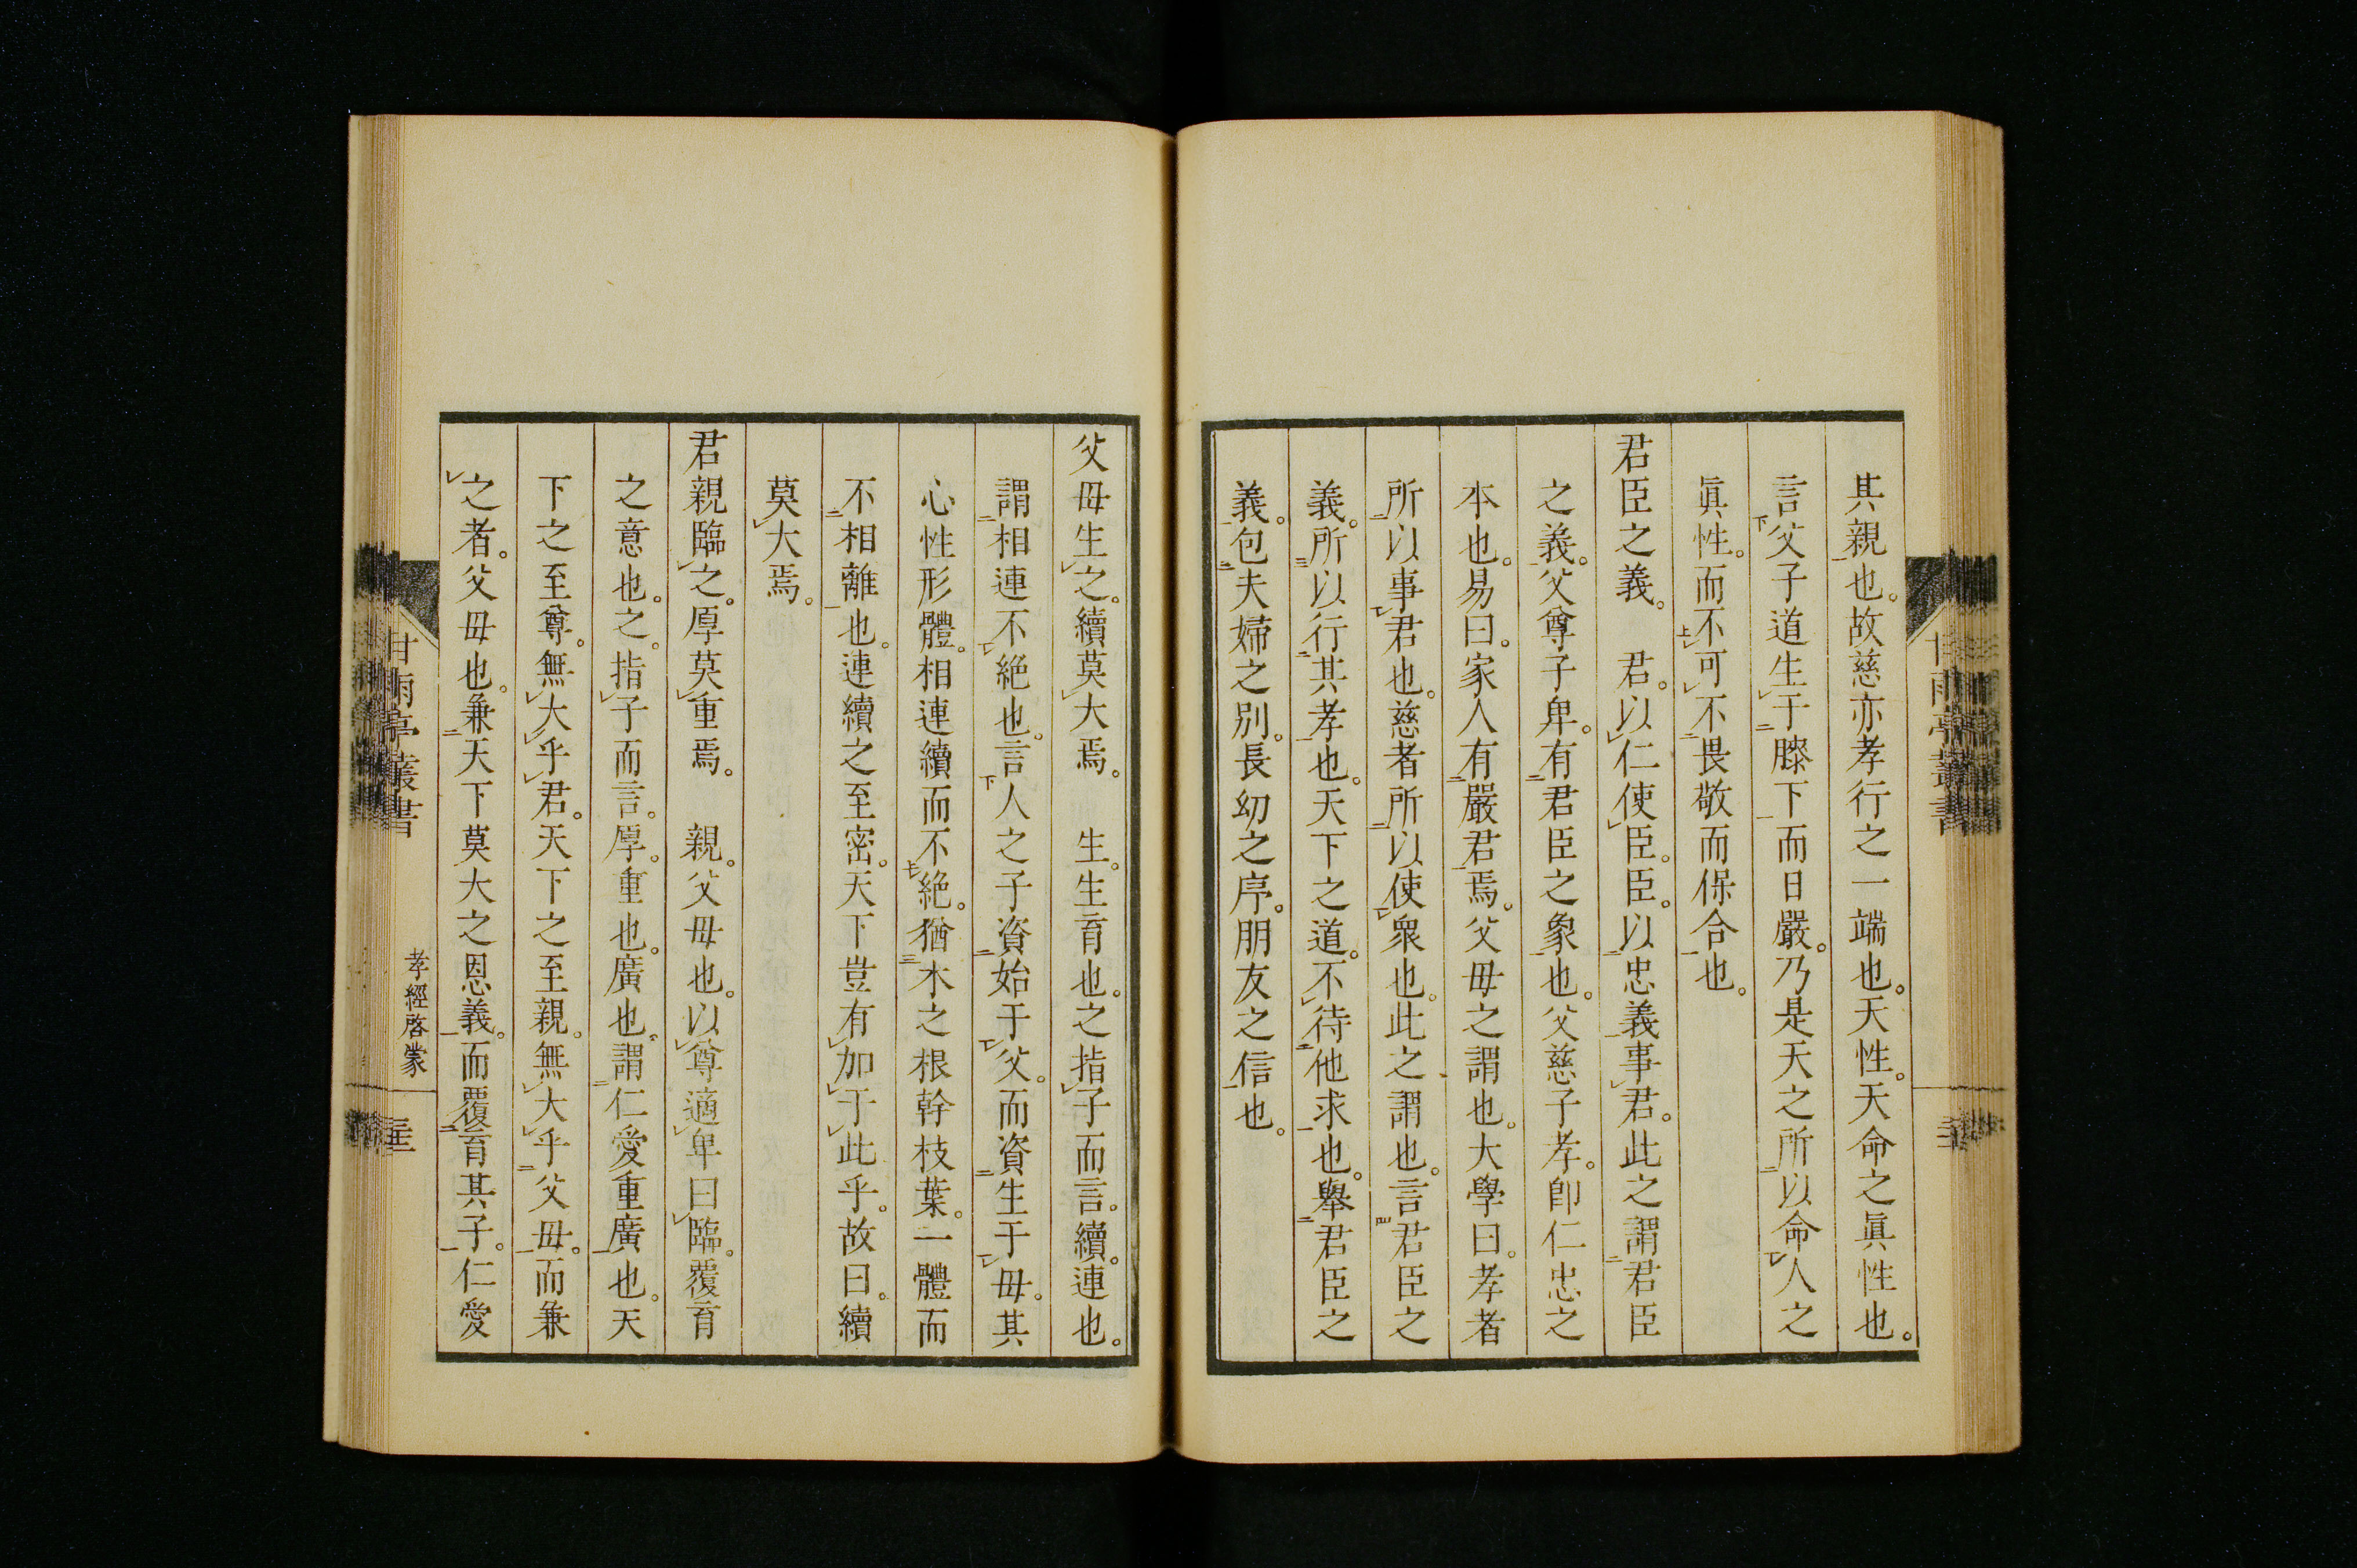 其親也。故慈亦孝行之一端也。天性。天命之眞性也。
言父子道生于膝下而日嚴。乃是天之所以命人之
眞性。而不可不畏敬而保合也。
君臣之義。　君。以仁使臣。臣。以忠義事君。此之謂君臣
之義。父尊子卑。有君臣之象也。父慈子孝。卽仁忠之
本也。易曰。家人有嚴君焉。父母之謂也。大學曰。孝者
所以事君也。慈者所以使衆也。此之謂也。言君臣之
義。所以行其孝也。天下之道。不待他求也。舉君臣之
義。包夫婦之別。長幼之序。朋友之信也。
父母生之。續莫大焉。　生。生育也。之指子而言。續。連也。
謂相連不絶也。言人之子資始于父。而資生于母。其
心性形體。相連續而不絶。猶木之根幹枝葉。一體而
不相離也。連續之至密。天下豈有加于此乎。故曰。續
莫大焉。
君親臨之。厚莫重焉。　親。父母也。以尊適卑曰臨。覆育
之意也。之。指子而言。厚。重也。廣也。謂仁愛重廣也。天
下之至尊。無大乎君。天下之至親。無大乎父母。而兼
之者。父母也。兼天下莫大之恩義。而覆育其子。仁愛
甘雨亭叢書
孝經啓蒙